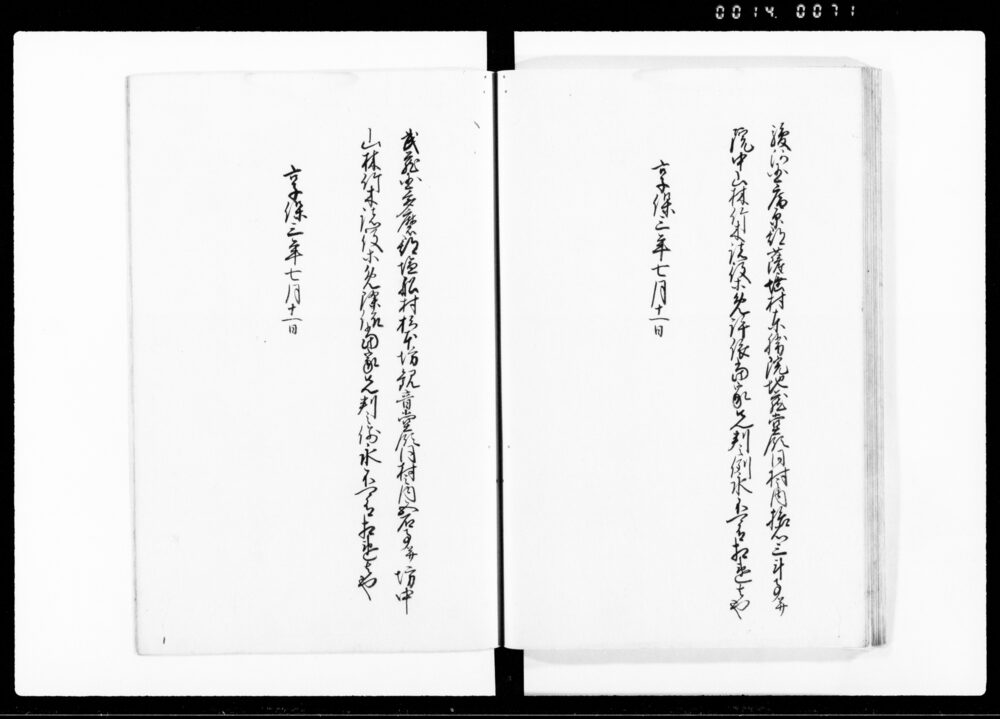 0014 0071
駿河国庵原郡薩埵村東勝院地蔵堂領同村内拾石三斗事并
院中山林竹木諸役等免許依当家先判之例永不可有相違者也
享保三年七月十一日
武蔵国多磨郡塩船村橋本坊観音堂領同村之内五石事并坊中
山林竹木諸役等免除依当家先判之例永不可有相違者也
享保三年七月十一日